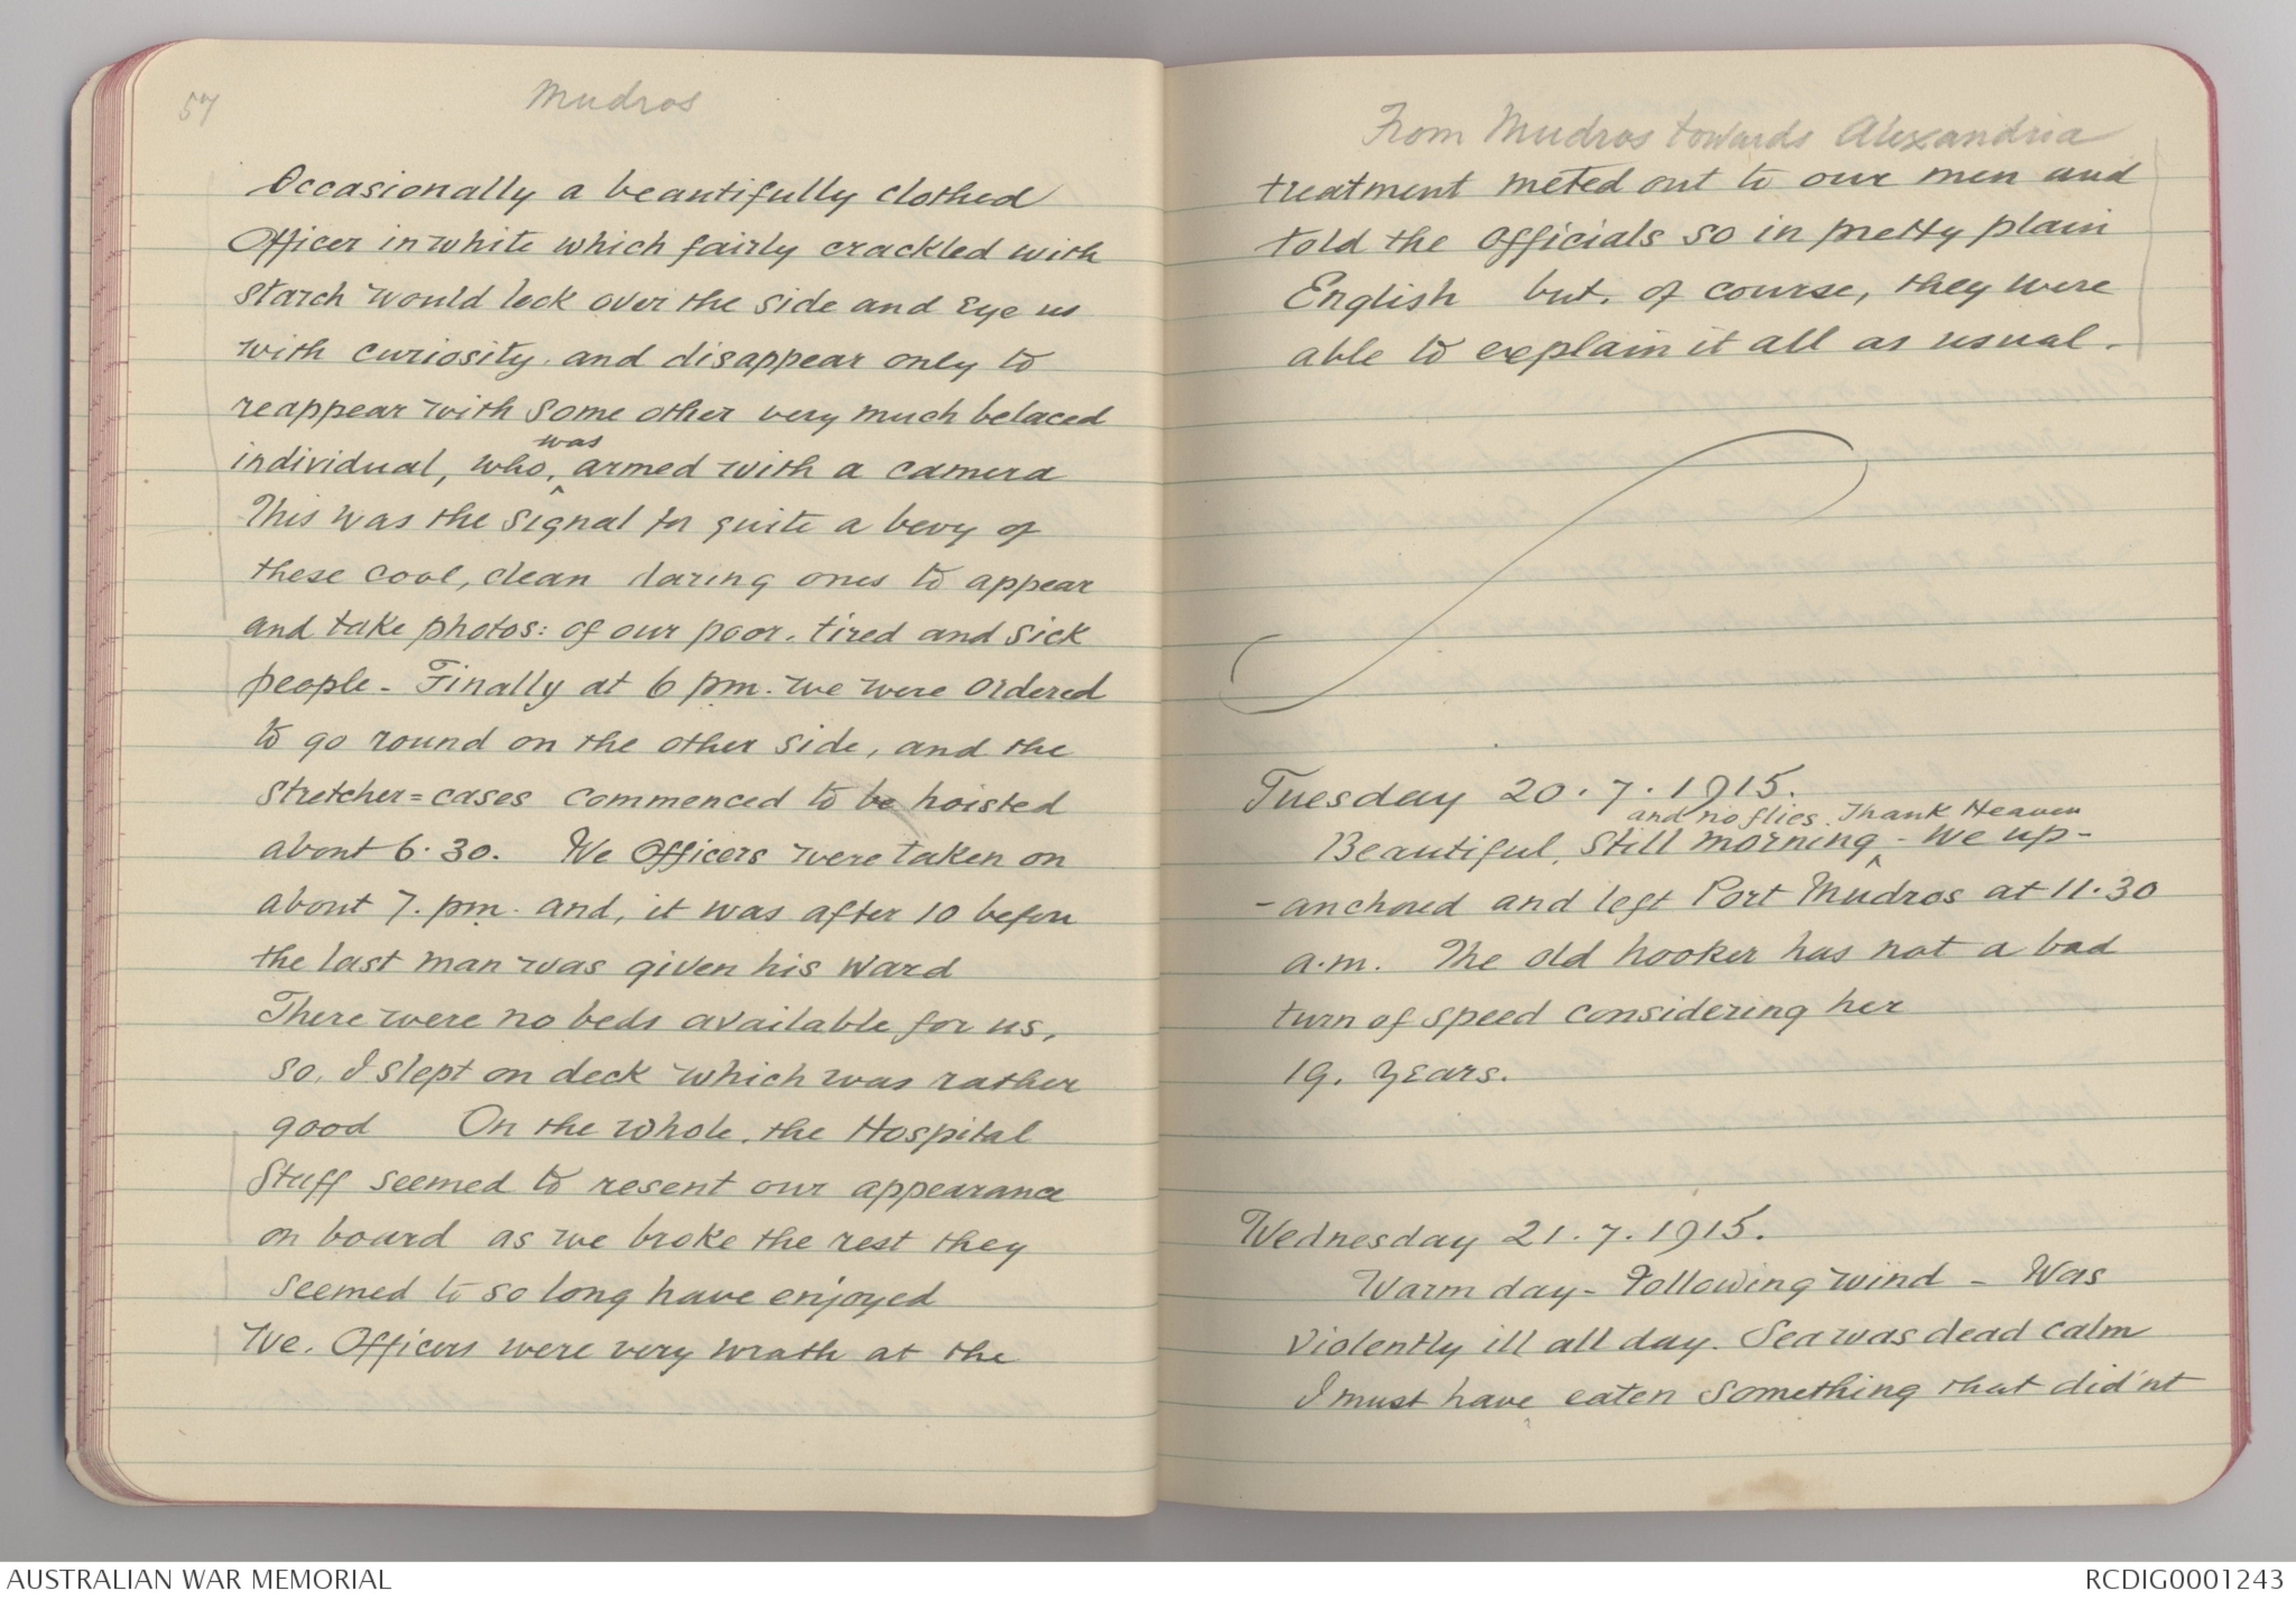 57
Mudros
Occasionally a beautifully clothed
Officer in white which fairly crackled with
starch would look over the side and eye us
with curiosity, and disappear only to
reappear with some other very much belaced
was
individual, who, ^ armed with a camera
This was the signal for quite a bevy of
these cool, clean daring ones to appear
and take photos: of our poor, tired and sick
people - Finally at 6 pm. we were ordered
to go round on the other side, and the
stretcher=cases commenced to be hoisted
about 6.30. We Officers were taken on
about 7. pm. and, it was after 10 before
the last man was given his ward
There were no beds available for us,
so, I slept on deck which was rather
good On the whole, the Hospital
Staff seemed to resent our appearance
on board as we broke the rest they
seemed to so long have enjoyed
We, Officers were very wrath at the
From Mudros towards Alexandria
treatment meted out to our men and
told the officials so in pretty plain
English but, of course, they were
able to explain it all as usual.
Tuesday 20.7.1915.
and no flies. Thank Heaven
Beautiful, still morning ^ - We up-
-anchored and left Port Mudros at 11.30
a.m. The old hooker has not a bad
turn of speed considering her
19. years.
Wednesday 21.7.1915.
Warm day - Following wind - Was
violently ill all day. Sea was dead calm
I must have eaten something that did'nt
AUSTRALIAN WAR MEMORIAL
RCDIG0001243